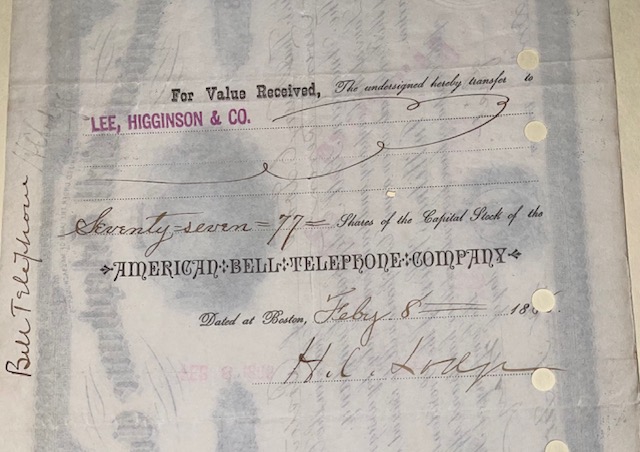 For Value Received, The undersigned hereby transfer to
LEE, HIGGINSON & CO.
Seventy-seven = 77 = Shares of the Capital Stock of the
AMERICAN BELL TELEPHONE COMPANY
Dated at Boston, Feby 8 18
H. C. Lodge
Bell Telephone